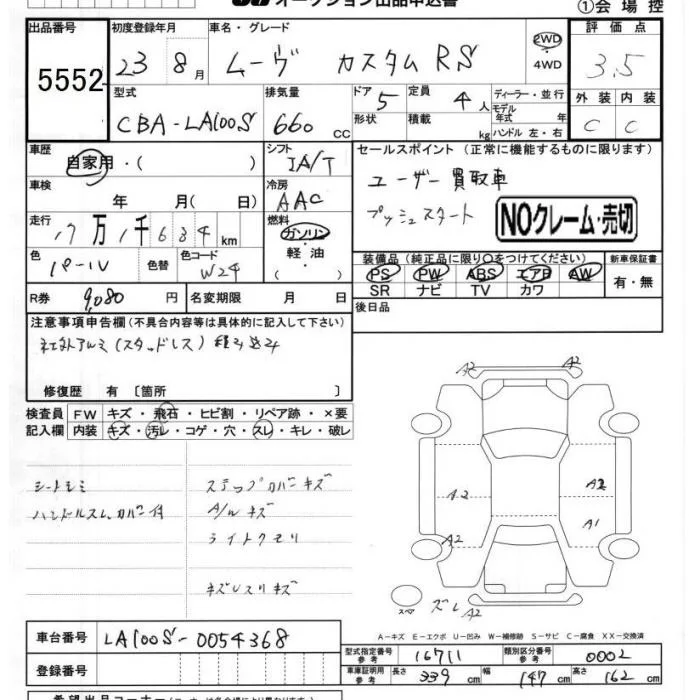 オークション出品申込書
①会場控
出品番号 5552
初度登録年月 23 8月
車名・グレード ムーヴ カスタム RS
2WD
4WD
評価点 3.5
型式 CBA-LA100S
排気量 660 cc
ドア 5
形状
定員 4人
積載 kg
ディーラー・並行
モデル年式 年
ハンドル 左・右
外装 C
内装 C
車歴 自家用・( )
シフト IA/T
車検 年 月( 日)
冷房 AAC
走行 17万1千634km
燃料 ガソリン
軽・油
( )
色 パール
色替
色コード W24
R券 9,080円
名変期限 月 日
セールスポイント(正常に機能するものに限ります)
ユーザー買取車
プッシュスタート
NOクレーム・売切
装備品(純正品に限り○をつけてください)
PS PW ABS エアB AW
SR ナビ TV カワ
新車保証書
有・無
後日品
注意事項申告欄(不具合内容等は具体的に記入して下さい)
社外アルミ(スタッドレス)積み込み
修復歴 有〔箇所 〕
検査員 FW キズ・飛石・ヒビ割・リペア跡・×要
記入欄 内装 キズ・汚レ・コゲ・穴・スレ・キレ・破レ
シートシミ
ハンドルスレ、カバー付
ステップカバーキズ
A/Wキズ
ライトクモリ
A2 A2
A2 A2
A2 A1
スペア
A2
A-キズ E-エクボ U-凹み W-補修跡 S-サビ C-腐食 XX-交換済
車台番号 LA100S-0054368
登録番号
型式指定番号 参考 16711
類別区分番号 参考 0002
車庫証明用 参考 長さ 339cm 幅 147cm 高さ 162cm